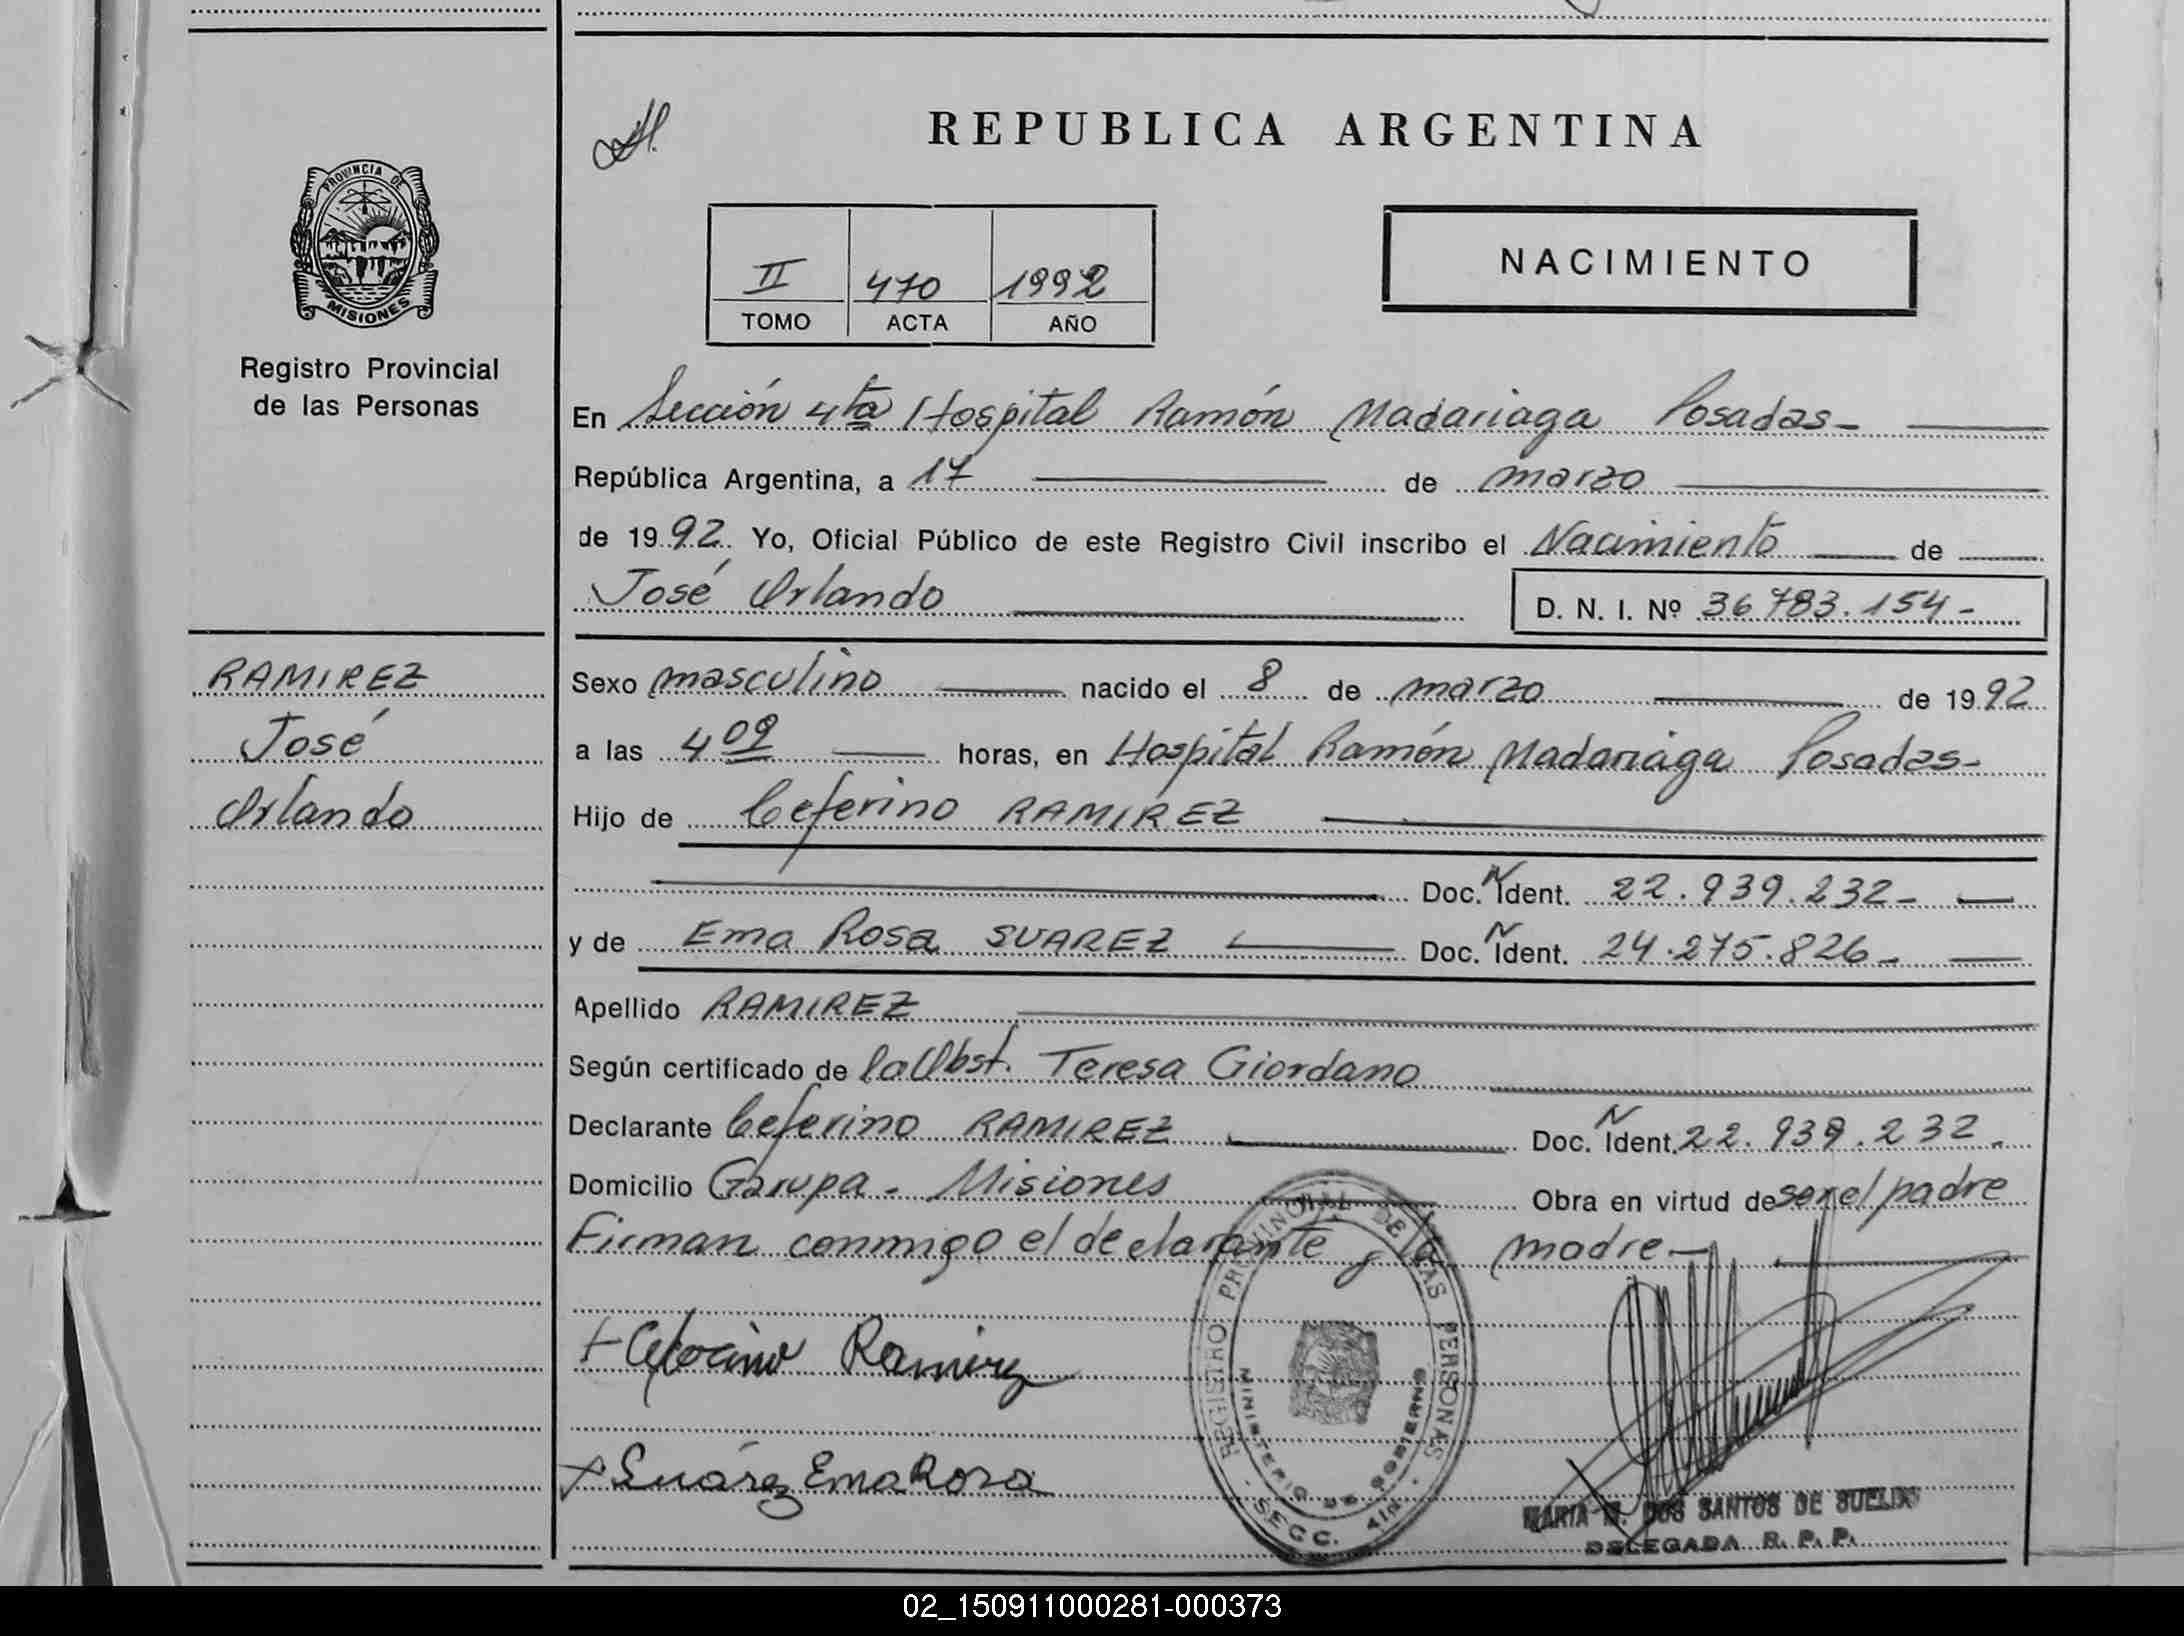 PROVINCIA DE
MISIONES
Registro Provincial
de las Personas
RAMIREZ
José
Orlando
REPUBLICA ARGENTINA
II 470 1992
TOMO ACTA AÑO
NACIMIENTO
En Sección 4ta Hospital Ramón Madariaga Posadas-
República Argentina, a 17 de marzo
de 1992. Yo, Oficial Público de este Registro Civil inscribo el Nacimiento de
José Orlando
D. N. I. Nº 36.783.154-
Sexo masculino nacido el 8 de marzo de 1992
a las 4 09 horas, en Hospital Ramón Madariaga Posadas-
Hijo de Ceferino RAMIREZ
Doc. N Ident. 22.939.232-
y de Ema Rosa SUAREZ Doc. N Ident. 24.275.826-
Apellido RAMIREZ
Según certificado de la Obst. Teresa Giordano
Declarante Ceferino RAMIREZ Doc. N Ident. 22.939.232.
Domicilio Garupa - Misiones Obra en virtud de ser el padre
Firman conmigo el declarante y la madre-
+ Ceferino Ramirez
+ Suárez Ema Rosa
REGISTRO PROVINCIAL DE LAS PERSONAS
MINISTERIO DE GOBIERNO
SECC. 4ta
MARIA M. DOS SANTOS DE SUELDO
DELEGADA R. P. P.
02_150911000281-000373